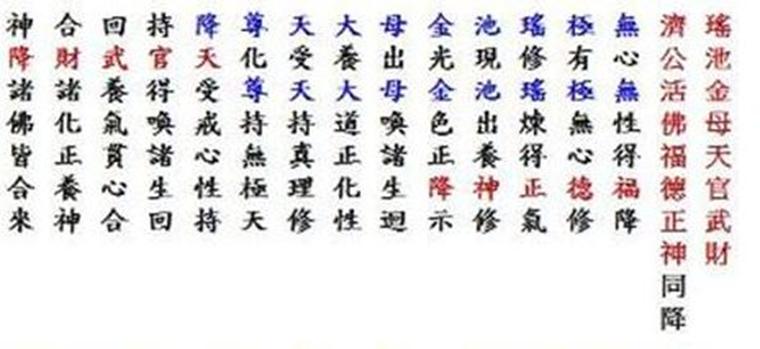 瑤池金母天官武財
濟公活佛福德正神同降
無心無性得福降
極有極無心德修
瑤修瑤煉得正氣
池現池出養神修
金光金色正降示
母出母喚諸生迴
大養大道正化性
天受天持真理修
尊化尊持無極天
降天受戒心性持
持官得喚諸生回
回武養氣貫心合
合財諸化正養神
神降諸佛皆合來